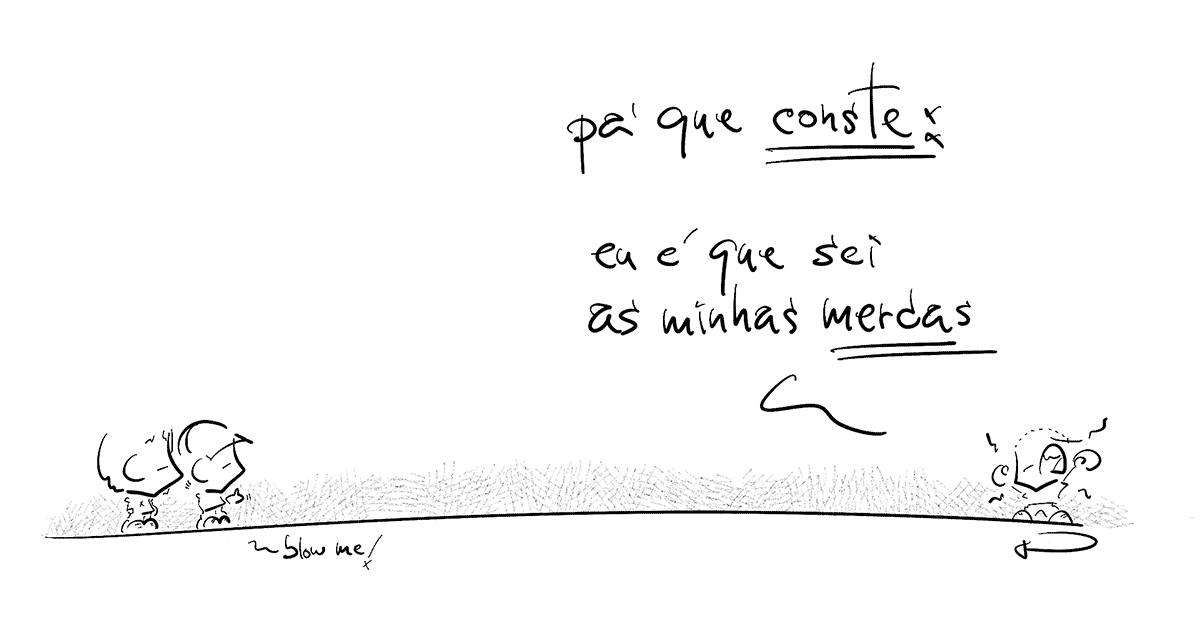 pá que conste:
eu é que sei
as minhas merdas
~ blow me!